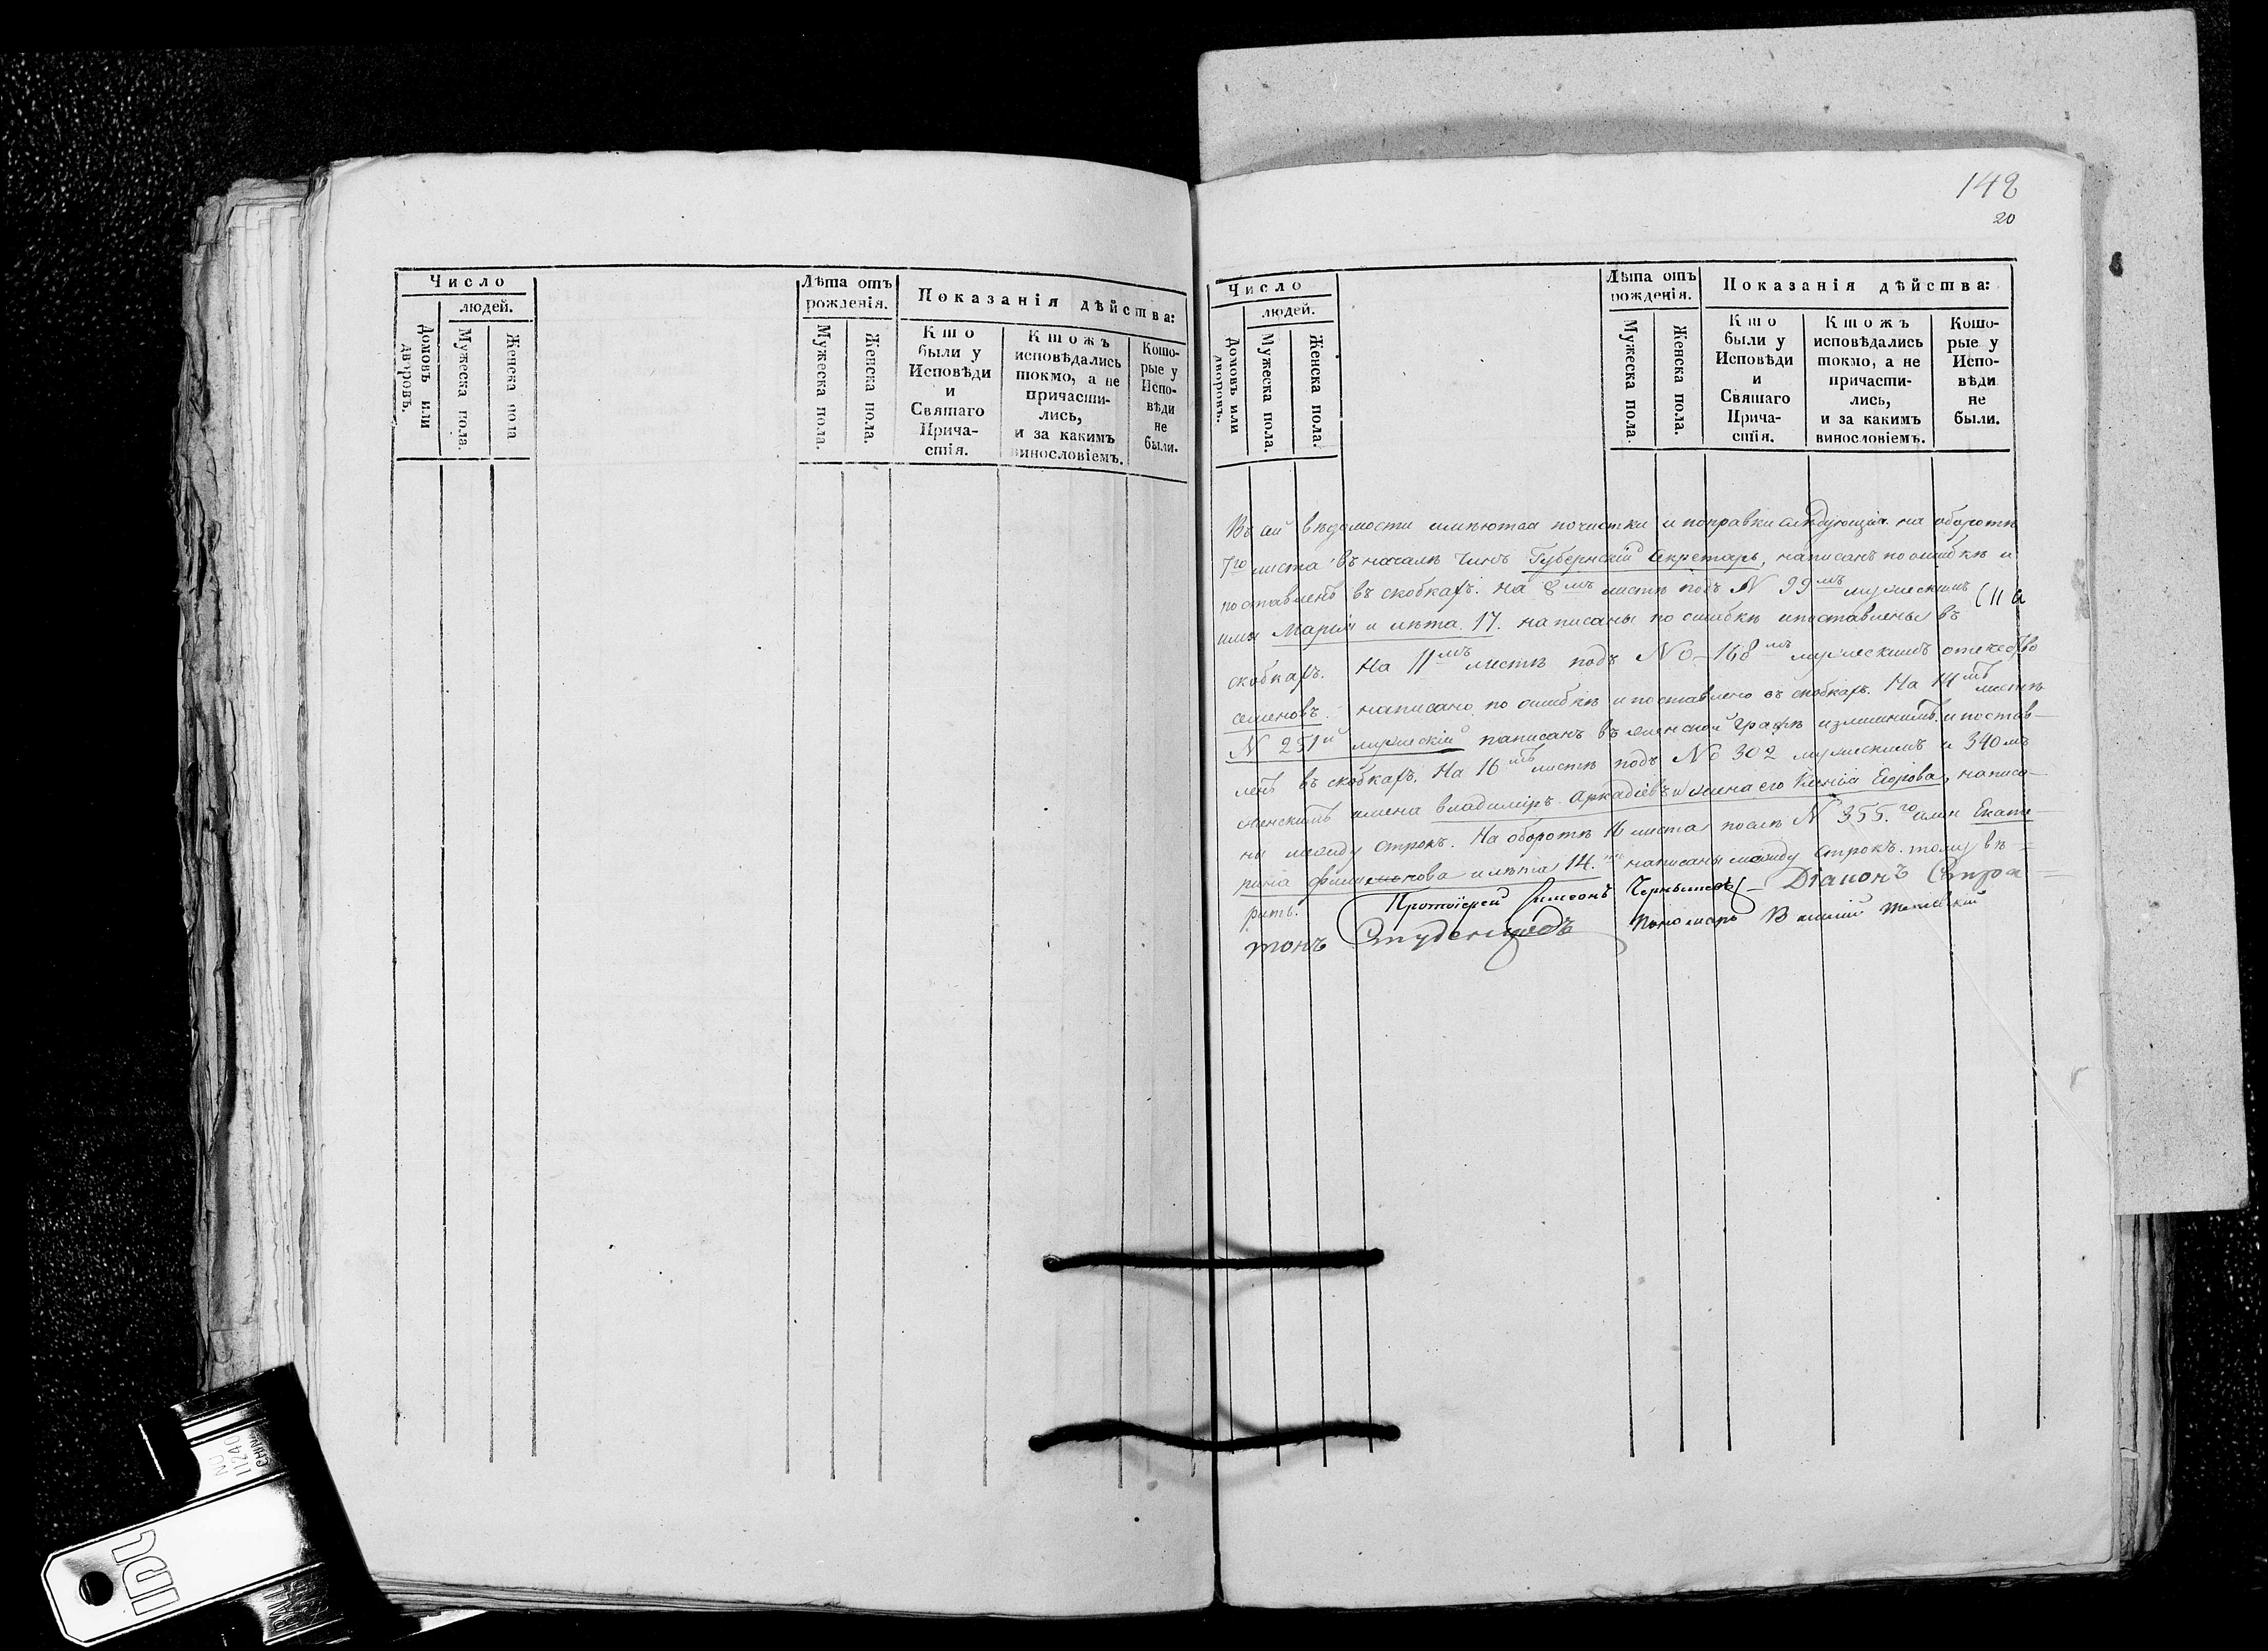 Число
людей.
Домовъ или дворовъ.
Мужеска пола.
Женска пола
Лѣта отъ
рожденія.
Мужеска пола.
Женска пола.
Показанія дѣйства:
Кто
были у
Исповѣди
и
Святаго
Прича-
стія.
Ктожъ
исповѣдались
токмо, а не
причасти-
лись,
и за какимъ
винословіемъ.
Кото-
рые у
Испо-
вѣди
не
были.
148
20
Число
людей.
Домовъ или дворовъ.
Мужеска пола.
Женска пола.
Лѣта отъ
рожденія.
Мужеска пола.
Женска пола.
Показанія дѣйства:
Кто
были у
Исповѣди
и
Святаго
Прича-
стія.
Ктожъ
исповѣдались
токмо, а не
причасти-
лись,
и за какимъ
винословіемъ.
Кото-
рые у
Испо-
вѣди
не
были.
Въ сей вѣдомости имѣются почистки и поправки слѣдующія: на оборотѣ
7го листа въ началѣ чинъ Губернскій Секретарь, написанъ по ошибкѣ и
поставленъ въ скобкахъ. На 8мъ листѣ подъ № 99мъ мужескимъ
имя Марѳа и лѣта 17. написаны по ошибкѣ и поставлены въ
скобкахъ. На 11мъ листѣ подъ № 168мъ мужескимъ отечество
семеновъ написано по ошибкѣ и поставлено въ скобкахъ. На 14мъ листѣ
№ 251й мужескій написанъ въ женской графѣ излишнимъ и постав-
ленъ въ скобкахъ. На 16мъ листѣ подъ № 302 мужескимъ и 340мъ
женскимъ имена владиміръ Аркадіевъ и жена его Ксенія Егорова, написа-
ны между строкъ. На оборотѣ 16 листа послѣ № 355.го имя Екате-
рина и лѣта 14. написаны между строкъ. тому вѣ-
рить. Протоіерей Симеонъ Чернышевъ Діаконъ Стра-
тонъ Студенцовъ Пономарь Василій
NO
11240
CHINA